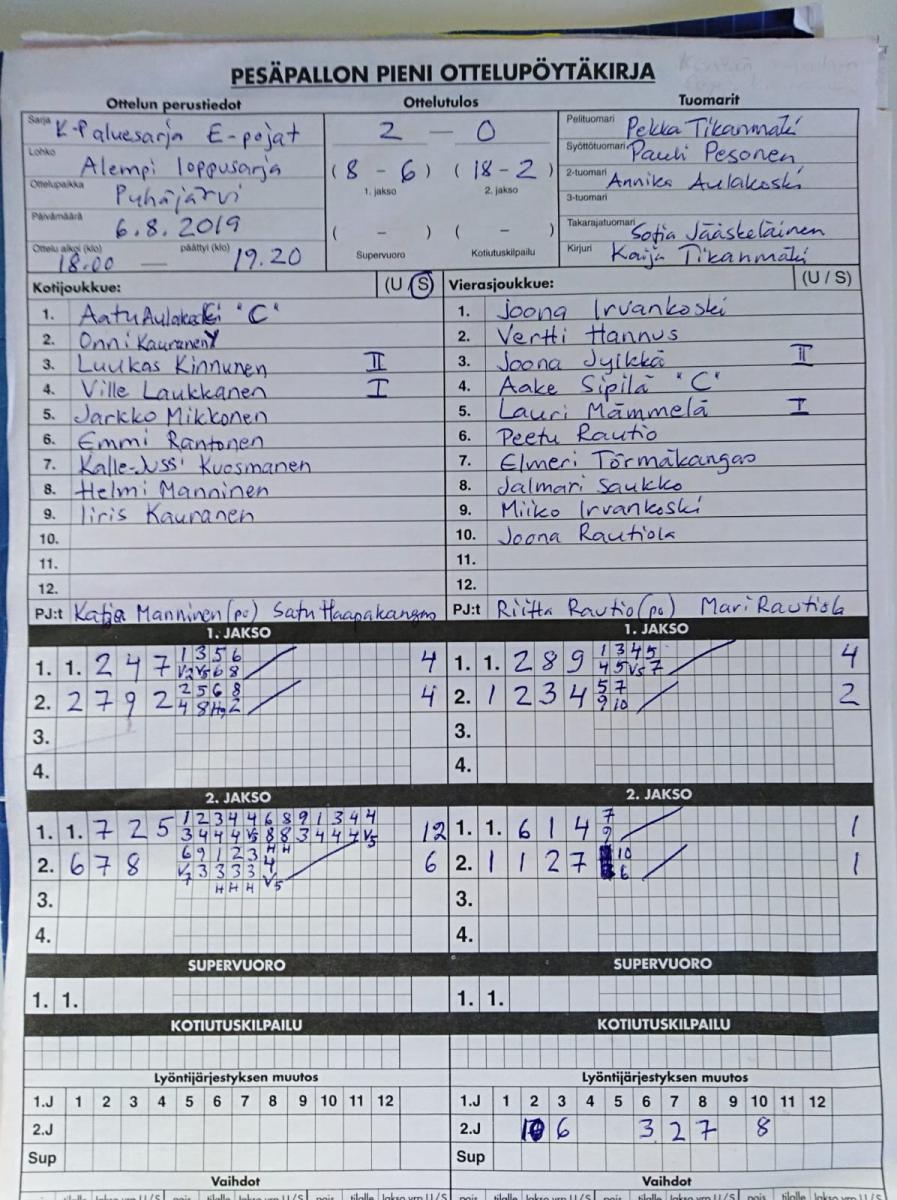 PESÄPALLON PIENI OTTELUPÖYTÄKIRJA
Ottelun perustiedot Ottelutulos Tuomarit
Sarja K-Paluesarja E-pojat
Lohko Alempi loppusarja
Ottelupaikka Puhäjärvi
Päivämäärä 6.8.2019
Ottelu alkoi (klo) 18.00 — päättyi (klo) 19.20
2 – 0
(8 - 6) (18 - 2)
1. jakso 2. jakso
( – ) ( – )
Supervuoro Kotiutuskilpailu
Pelituomari Pekka Tikanmäki
Syöttötuomari Pauli Pesonen
2-tuomari Annika Aulakoski
3-tuomari
Takarajatuomari Sofia Jääskeläinen
Kirjuri Kaija Tikanmäki
Kotijoukkue: (U / S)
1. Aatu Aulakoski "C"
2. Onni Kauranen
3. Luukas Kinnunen II
4. Ville Laukkanen I
5. Jarkko Mikkonen
6. Emmi Rantonen
7. Kalle-Jussi Kuosmanen
8. Helmi Manninen
9. Iiris Kauranen
10.
11.
12.
PJ:t Katja Manninen (pj) Satu Haapakangas
Vierasjoukkue: (U / S)
1. Joona Irvankoski
2. Vertti Hannus
3. Joona Jylkkä II
4. Aake Sipilä "C"
5. Lauri Mämmelä I
6. Peetu Rautio
7. Elmeri Törmäkangas
8. Jalmari Saukko
9. Miiko Irvankoski
10. Joona Rautiola
11.
12.
PJ:t Riitta Rautio (pj) Mari Rautiola
1. JAKSO
1. 1. 2 4 7 1 3 5 6 4
V2 V5 6 8
2. 2 7 9 2 2 5 6 8 4
4 8 2
3.
4.
1. JAKSO
1. 1. 2 8 9 1 3 4 5 4
4 5 V5 7
2. 1 2 3 4 5 7 2
9 10
3.
4.
2. JAKSO
1. 1. 7 2 5 1 2 3 4 4 6 8 9 1 3 4 4 12
3 4 4 4 V5 8 8 3 4 4 4 V5
H H
2. 6 7 8 6 9 1 2 3 4 6
V7 3 3 3 3 V5
H H H
3.
4.
2. JAKSO
1. 1. 6 1 4 7 1
9
2. 1 1 2 7 10 1
6
3.
4.
SUPERVUORO SUPERVUORO
1. 1. 1. 1.
KOTIUTUSKILPAILU KOTIUTUSKILPAILU
Lyöntijärjestyksen muutos
1.J 1 2 3 4 5 6 7 8 9 10 11 12
2.J
Sup
Lyöntijärjestyksen muutos
1.J 1 2 3 4 5 6 7 8 9 10 11 12
2.J 6 3 2 7 8
Sup
Vaihdot Vaihdot